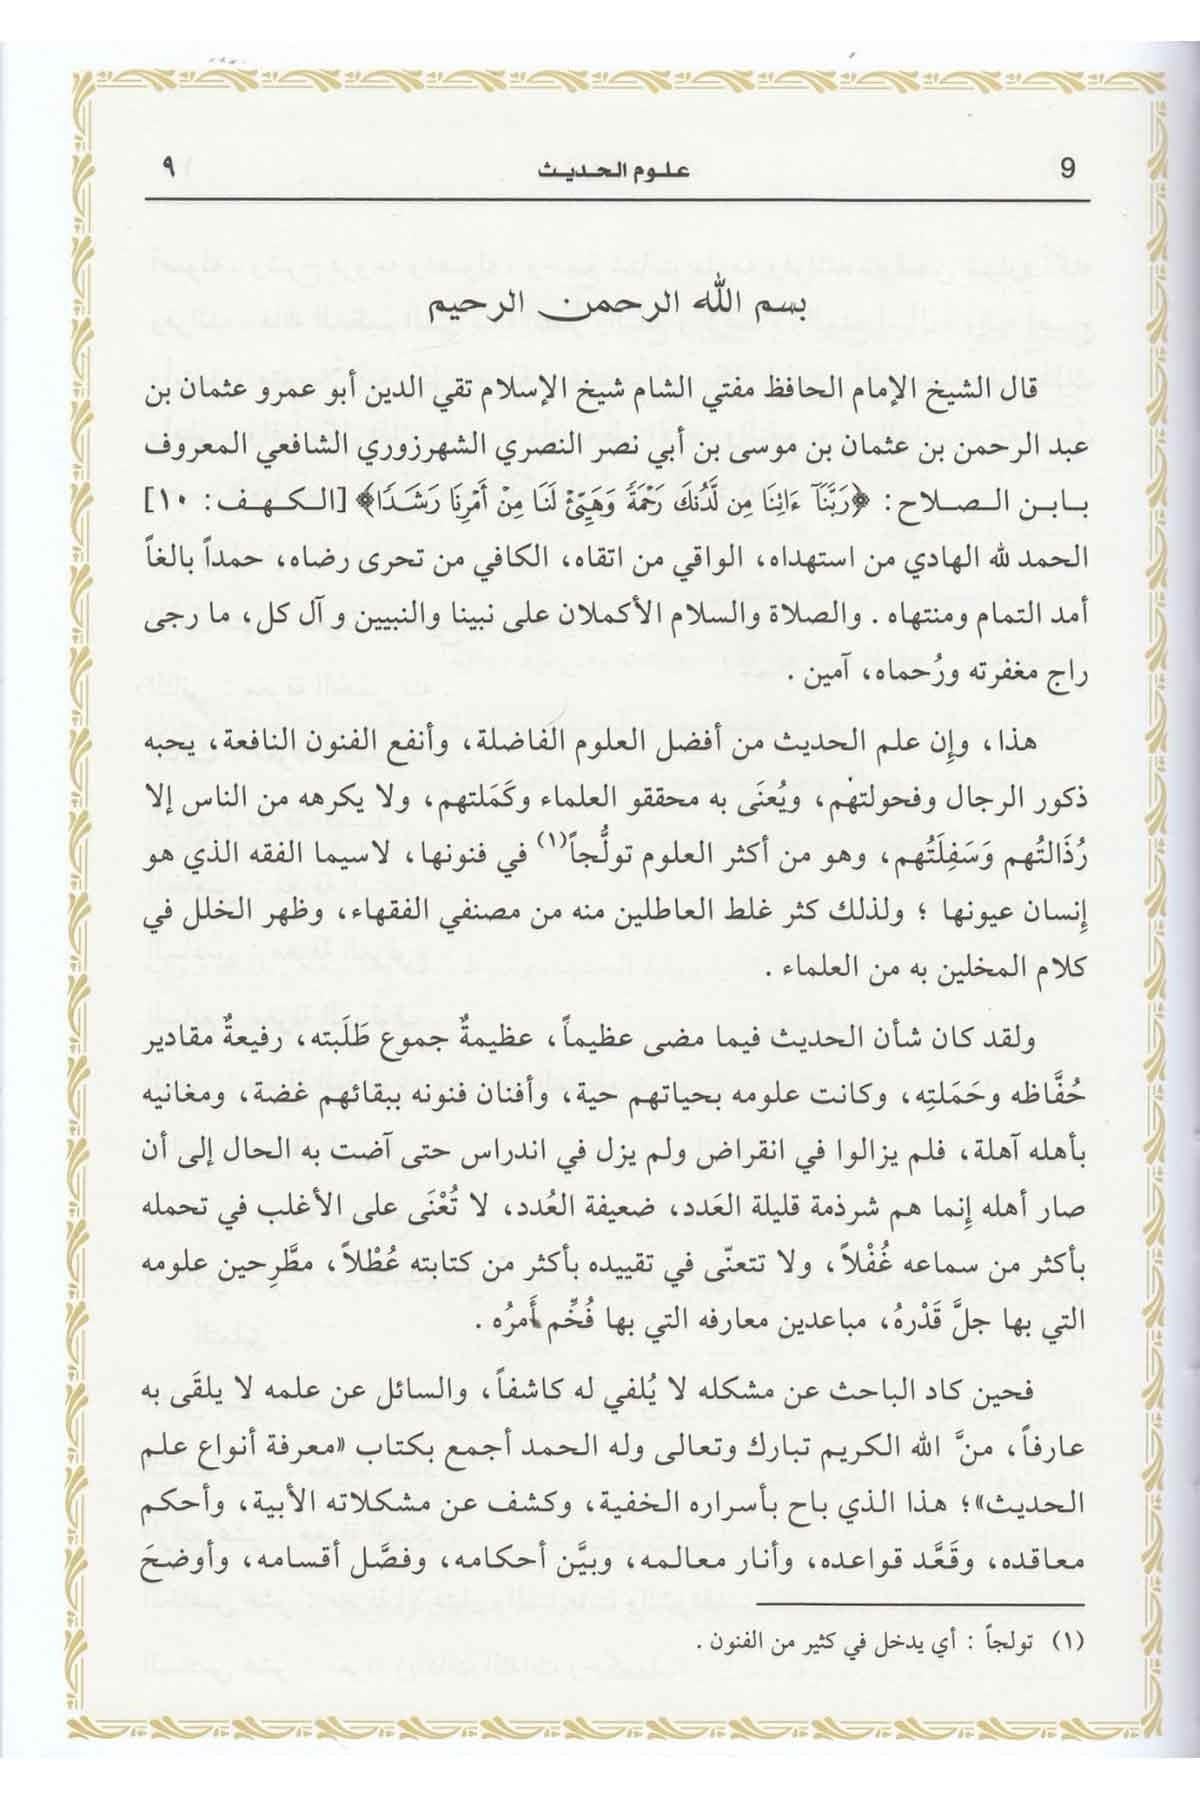 9 علوم الحديث ٩
بسم الله الرحمن الرحيم
قال الشيخ الإمام الحافظ مفتي الشام شيخ الإسلام تقي الدين أبو عمرو عثمان بن
عبد الرحمن بن عثمان بن موسى بن أبي نصر النصري الشهرزوري الشافعي المعروف
بابن الصلاح: ﴿رَبَّنَآ ءَاتِنَا مِن لَّدُنكَ رَحْمَةً وَهَيِّئْ لَنَا مِنْ أَمْرِنَا رَشَدًا﴾ [الكهف: ١٠]
الحمد لله الهادي من استهداه، الواقي من اتقاه، الكافي من تحرى رضاه، حمداً بالغاً
أمد التمام ومنتهاه . والصلاة والسلام الأكملان على نبينا والنبيين و آل كل، ما رجى
راج مغفرته ورُحماه، آمين .
هذا، وإن علم الحديث من أفضل العلوم الفاضلة، وأنفع الفنون النافعة، يحبه
ذكور الرجال وفحولتهم، ويُعنَى به محققو العلماء وكَمَلتهم، ولا يكرهه من الناس إلا
رُذَالتُهم وَسَفِلَتُهم، وهو من أكثر العلوم تولُّجاً(١) في فنونها، لاسيما الفقه الذي هو
إنسان عيونها ؛ ولذلك كثر غلط العاطلين منه من مصنفي الفقهاء، وظهر الخلل في
كلام المخلين به من العلماء .
ولقد كان شأن الحديث فيما مضى عظيماً، عظيمةٌ جموع طَلَبته، رفيعةٌ مقادير
حُفَّاظه وحَمَلتِه، وكانت علومه بحياتهم حية، وأفنان فنونه ببقائهم غضة، ومغانيه
بأهله آهلة، فلم يزالوا في انقراض ولم يزل في اندراس حتى آضت به الحال إلى أن
صار أهله إنما هم شرذمة قليلة العَدد، ضعيفة العُدد، لا تُعْنَى على الأغلب في تحمله
بأكثر من سماعه غُفْلاً، ولا تتعنّى في تقييده بأكثر من كتابته عُطْلاً، مطَّرِحين علومه
التي بها جلَّ قَدْرهُ، مباعدين معارفه التي بها فُخِّم أَمرُه .
فحين كاد الباحث عن مشكله لا يُلفي له كاشفاً، والسائل عن علمه لا يلقَى به
عارفاً، منَّ الله الكريم تبارك وتعالى وله الحمد أجمع بكتاب «معرفة أنواع علم
الحديث»؛ هذا الذي باح بأسراره الخفية، وكشف عن مشكلاته الأبية، وأحكم
معاقده، وقَعَّد قواعده، وأنار معالمه، وبيَّن أحكامه، وفصَّل أقسامه، وأوضحَ
(١) تولجاً : أي يدخل في كثير من الفنون .